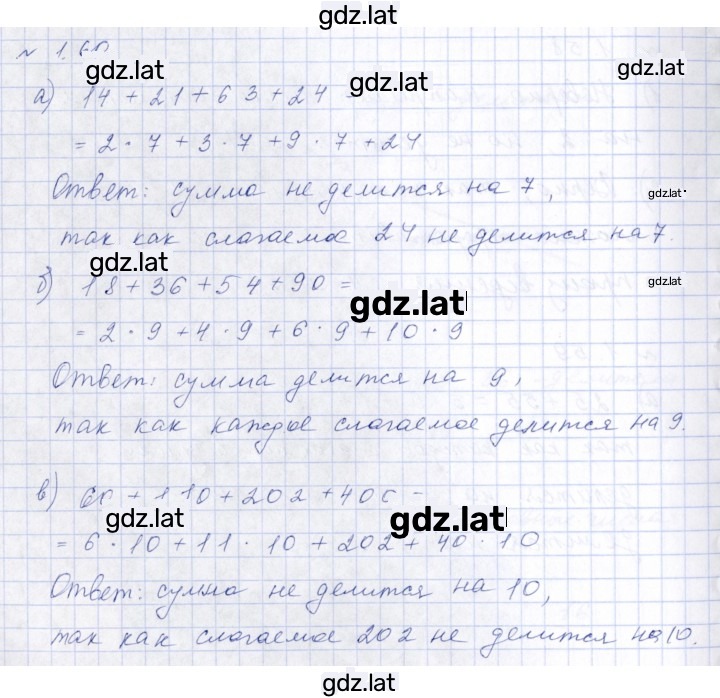 gdz.lat
№ 1.60
gdz.lat gdz.lat gdz.lat
а) 14 + 21 + 63 + 24
= 2 · 7 + 3 · 7 + 9 · 7 + 24
Ответ: сумма не делится на 7,
gdz.lat
так как слагаемое 24 не делится на 7.
gdz.lat
б) 18 + 36 + 54 + 90 =
gdz.lat
gdz.lat
= 2 · 9 + 4 · 9 + 6 · 9 + 10 · 9
Ответ: сумма делится на 9,
так как каждое слагаемое делится на 9.
в) 60 + 110 + 202 + 400 =
gdz.lat gdz.lat
= 6 · 10 + 11 · 10 + 202 + 40 · 10
Ответ: сумма не делится на 10,
так как слагаемое 202 не делится на 10.
gdz.lat